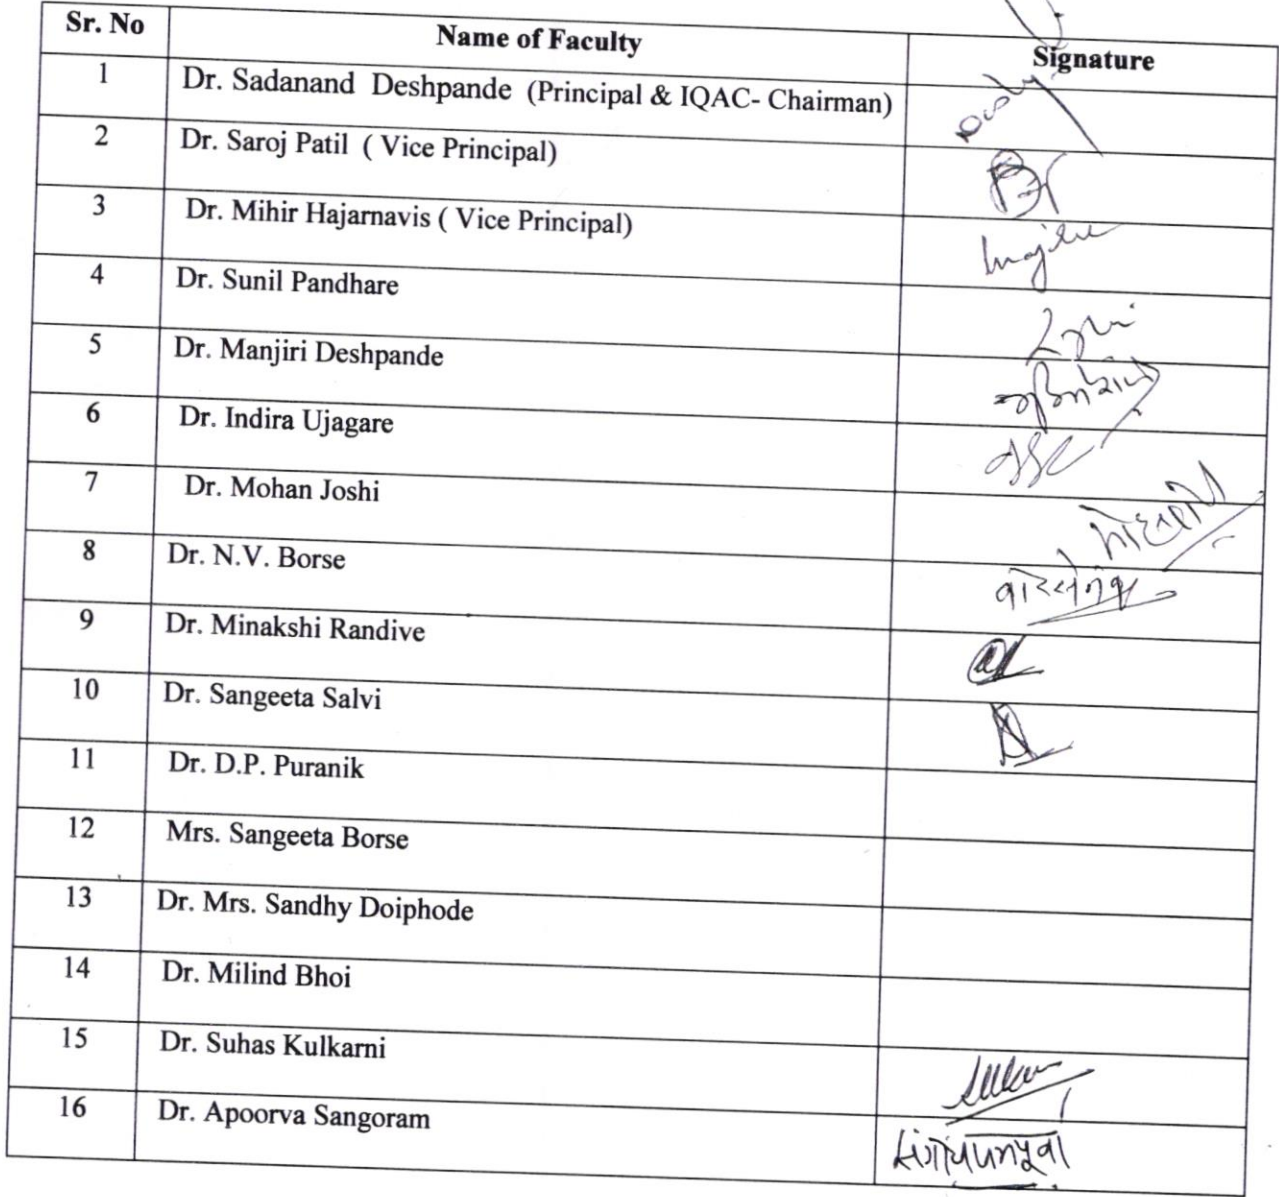 Sr. No Name of Faculty Signature
1 Dr. Sadanand Deshpande (Principal & IQAC- Chairman)
2 Dr. Saroj Patil ( Vice Principal)
3 Dr. Mihir Hajarnavis ( Vice Principal)
4 Dr. Sunil Pandhare
5 Dr. Manjiri Deshpande
6 Dr. Indira Ujagare
7 Dr. Mohan Joshi
8 Dr. N.V. Borse
9 Dr. Minakshi Randive
10 Dr. Sangeeta Salvi
11 Dr. D.P. Puranik
12 Mrs. Sangeeta Borse
13 Dr. Mrs. Sandhy Doiphode
14 Dr. Milind Bhoi
15 Dr. Suhas Kulkarni
16 Dr. Apoorva Sangoram